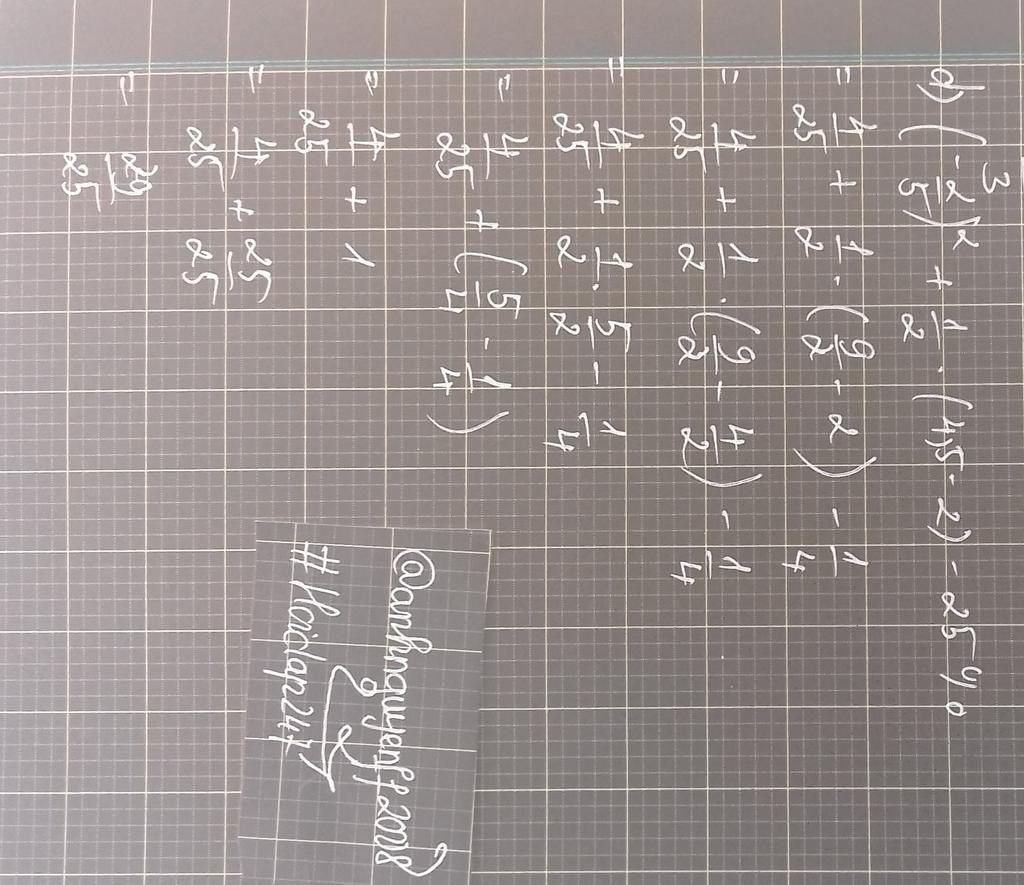 3
d) (-2/5)² + 1/2 . (4,5 - 2) - 25%
= 4/25 + 1/2 . (9/2 - 2) - 1/4
= 4/25 + 1/2 . (9/2 - 4/2) - 1/4
= 4/25 + 1/2 . 5/2 - 1/4
= 4/25 + (5/4 - 1/4)
= 4/25 + 1
= 4/25 + 25/25
= 29/25
@anhnguyenff2008
#Hoidap247